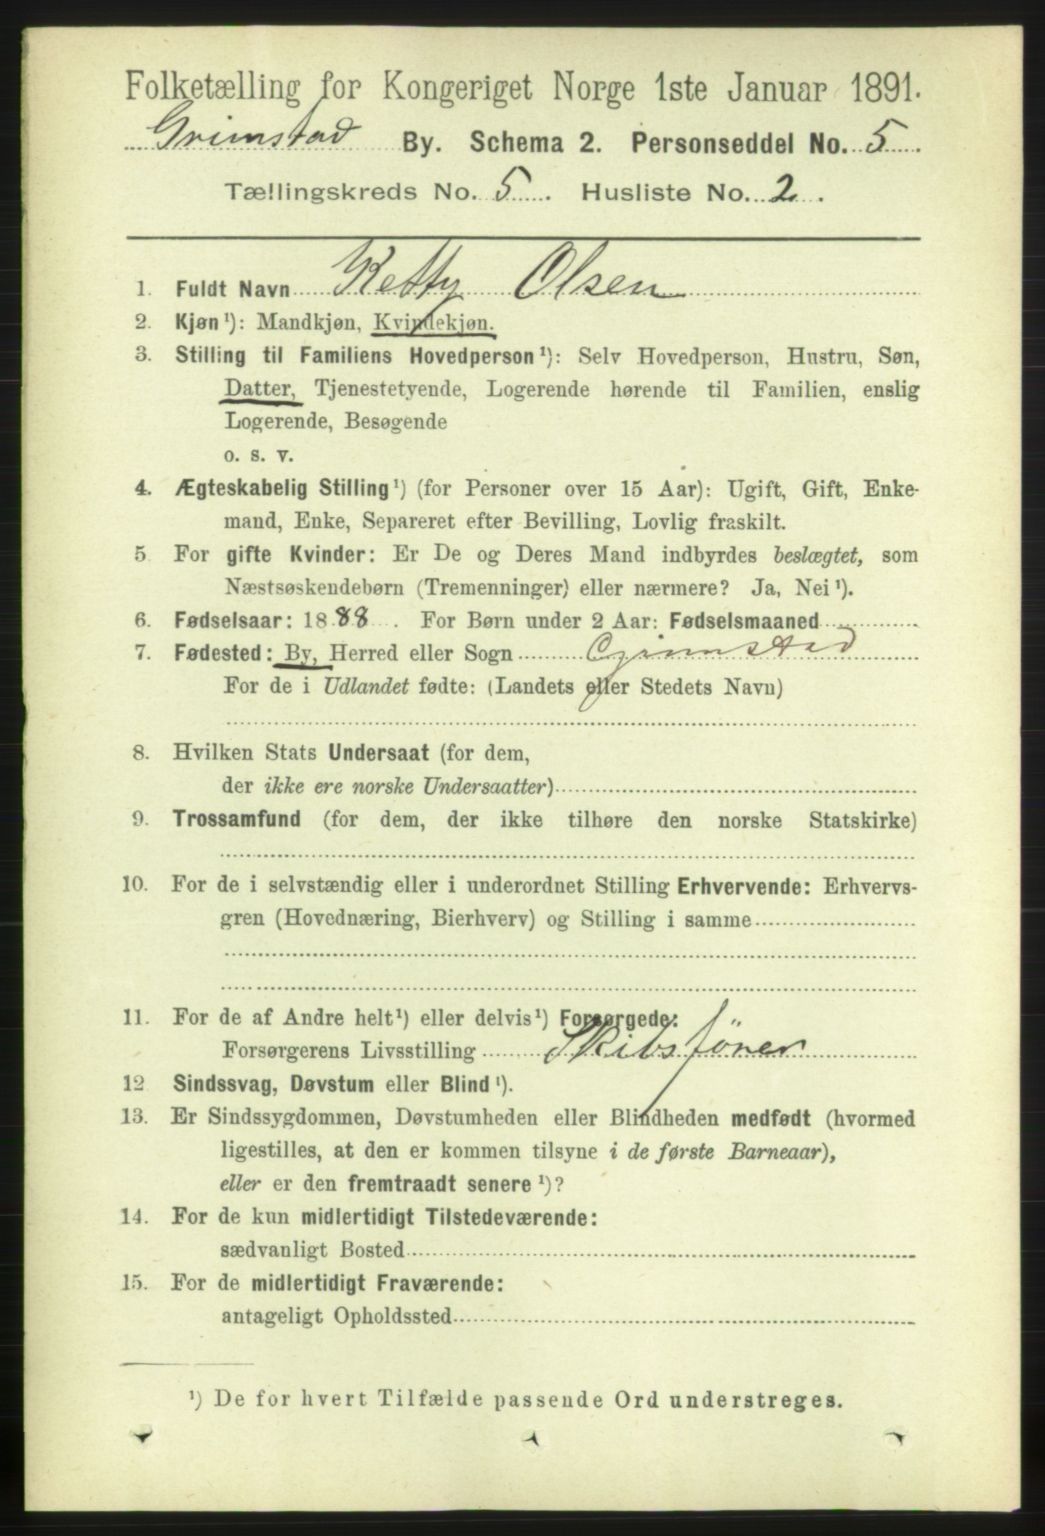 Folketælling for Kongeriget Norge 1ste Januar 1891.
Grimstad By. Schema 2. Personseddel No. 5.
Tællingskreds No. 5. Husliste No. 2.
1. Fuldt Navn Ketty Olsen
2. Kjøn¹): Mandkjøn, Kvindekjøn.
3. Stilling til Familiens Hovedperson¹): Selv Hovedperson, Hustru, Søn,
Datter, Tjenestetyende, Logerende hørende til Familien, enslig
Logerende, Besøgende
o. s. v.
4. Ægteskabelig Stilling¹) (for Personer over 15 Aar): Ugift, Gift, Enke-
mand, Enke, Separeret efter Bevilling, Lovlig fraskilt.
5 For gifte Kvinder: Er De og Deres Mand indbyrdes beslægtet, som
Næstsøskendebørn (Tremenninger) eller nærmere? Ja, Nei¹).
6. Fødselsaar: 1888. For Børn under 2 Aar: Fødselsmaaned
7. Fødested: By, Herred eller Sogn Grimstad
For de i Udlandet fødte: (Landets eller Stedets Navn)
8. Hvilken Stats Undersaat (for dem,
der ikke ere norske Undersaatter)
9. Trossamfund (for dem, der ikke tilhøre den norske Statskirke)
10. For de i selvstændig eller i underordnet Stilling Erhvervende: Erhvervs-
gren (Hovednæring, Bierhverv) og Stilling i samme
11. For de af Andre helt¹) eller delvis¹) Forsørgede:
Forsørgerens Livsstilling Skibsförer
12 Sindssvag, Døvstum eller Blind¹).
13. Er Sindssygdommen, Døvstumheden eller Blindheden medfødt (hvormed
ligestilles, at den er kommen tilsyne i de første Barneaar),
eller er den fremtraadt senere¹)?
14. For de kun midlertidigt Tilstedeværende:
sædvanligt Bosted
15. For de midlertidigt Fraværende:
antageligt Opholdssted
¹) De for hvert Tilfælde passende Ord understreges.